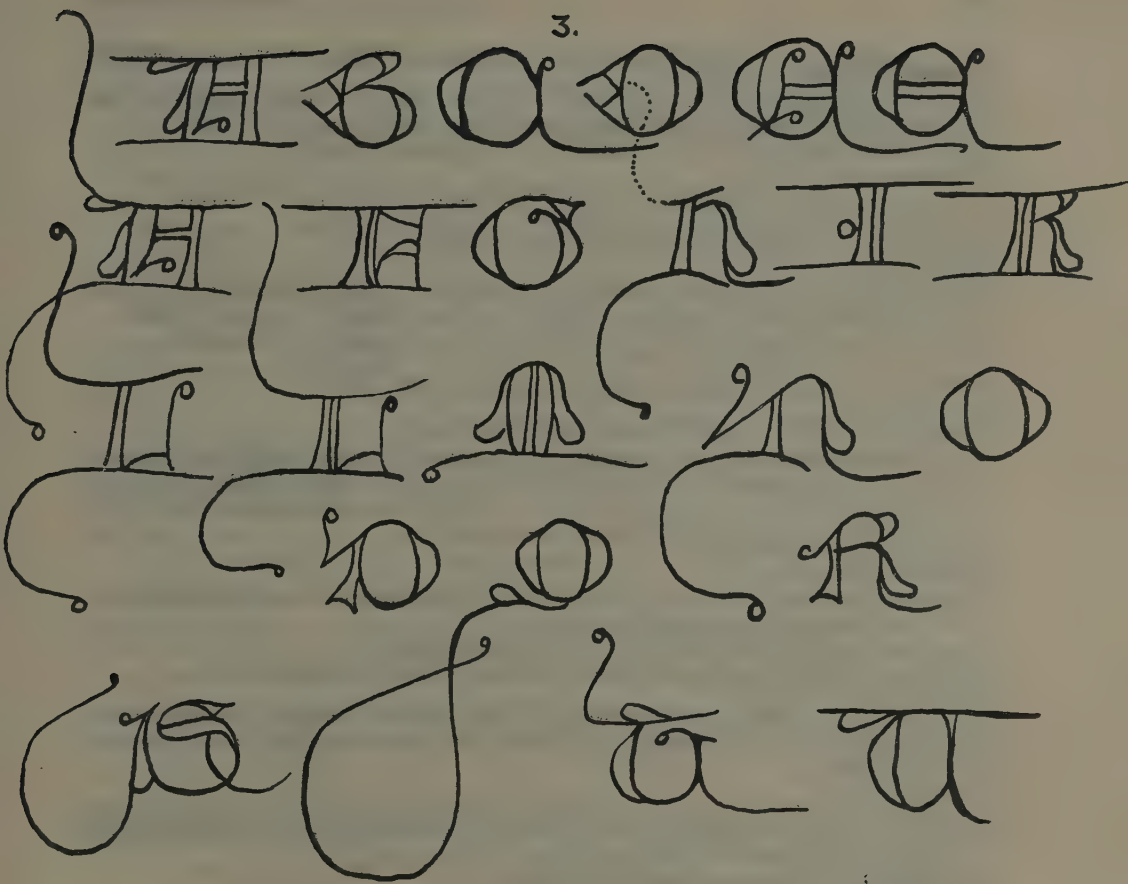 3.
A B C D E E
F F G H I K
L L M N O
P Q R
S T T